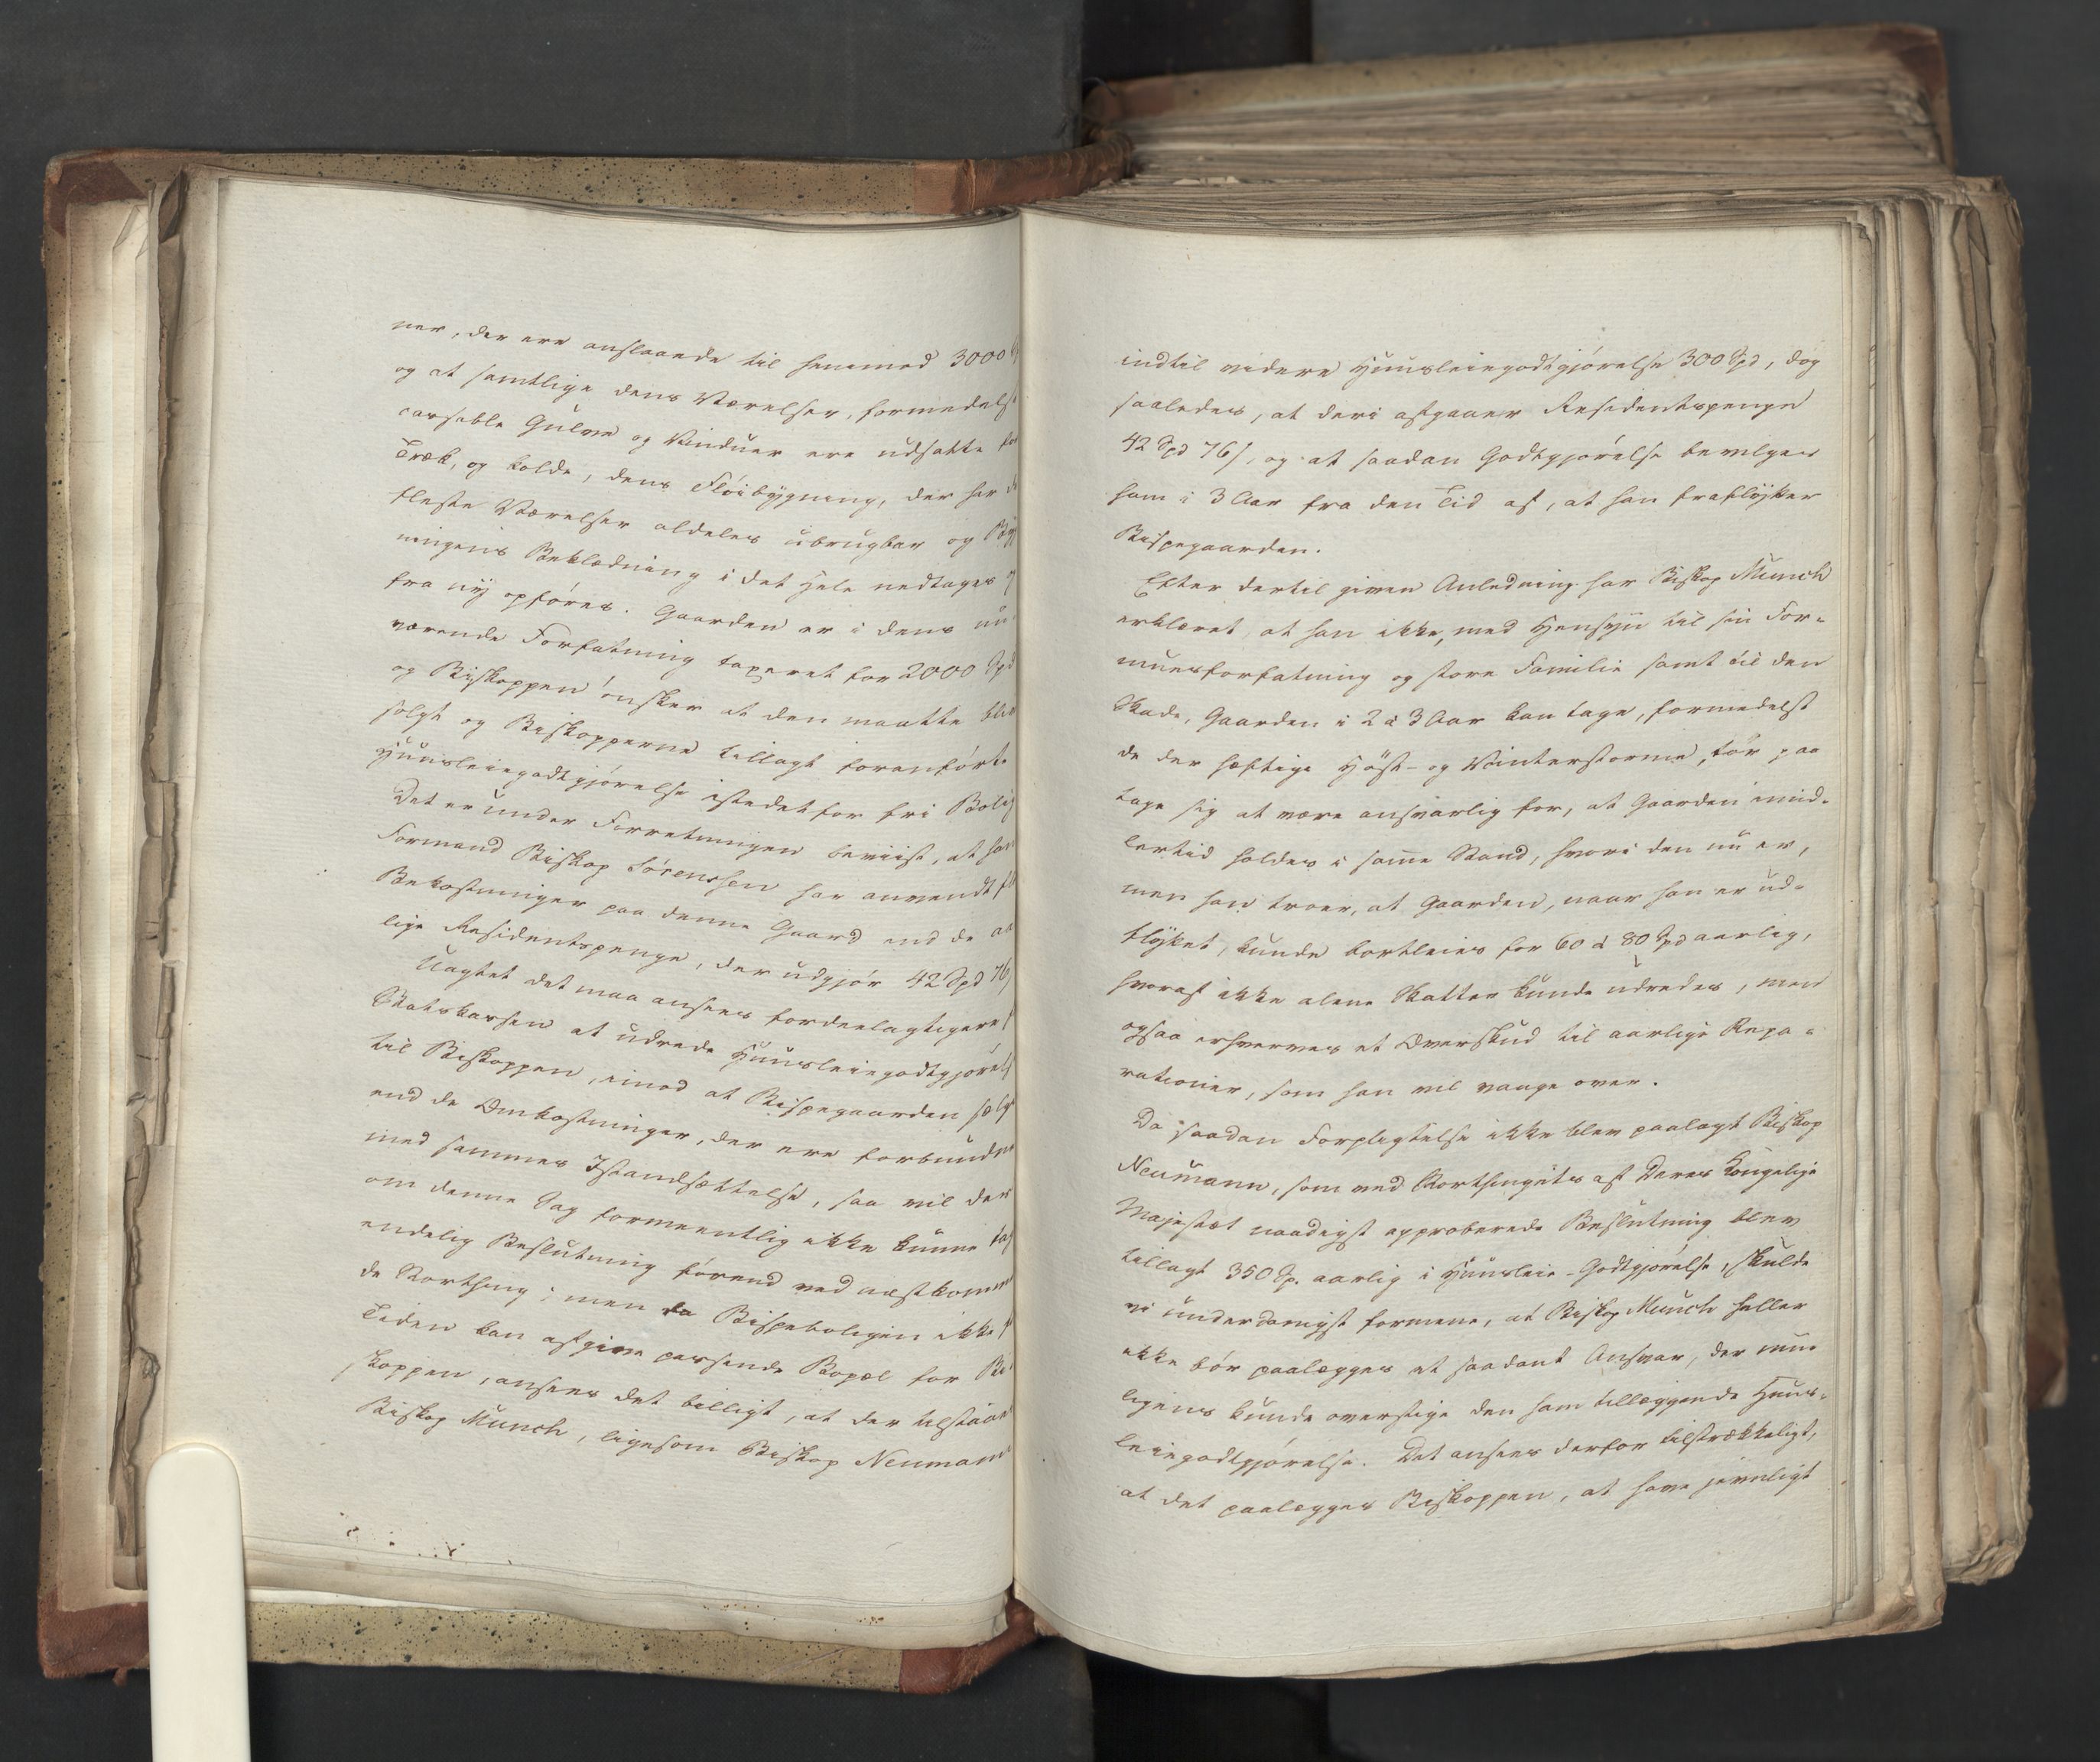 ner, der ere anslaaede til henimod 3000
og at samtlige dens Værelser, formedelst
casseble Gulve og Vinduer ere udsatte for
Træk, og Kolde, dens Fløibygning, der har
fleste Værelser aldeles ubrugbar og Byg
ningens Beklædning i det Hele nedtages
fra ny opføres. Gaarden er i dens nu
værende Forfatning taxeret for 2000 Spd
og Biskoppen ønsker at den maatte blive
solgt og Biskopperne tillagt foranførte
Huusleiegodtgjørelse istedetfor fri Bolig
Det er under Forretningen beviist, at hans
Formand Biskop Sørenssen har anvendt
Bekostninger paa denne Gaard end de aar
lige Residentspenge, der udgjør 42 Spd 76
Uagtet det maa ansees fordeelagtigere
Statskassen at udrede Huusleiegodtgjørelse
til Biskoppen, imod at Bispegaarden sælges
end de Omkostninger, der ere forbundne
med sammes Istandsættelse, saa vil der
om denne Sag formeentlig ikke kunne tages
endelig Beslutning førend ved næstkommen
de Storthing; men da Bispeboligen ikke
Tiden kan afgive passende Bopæl for Bi
skoppen, ansees det billigt, at der tilstaaes
Biskop Munch, ligesom Biskop Neumann
indtil videre Huusleiegodtgjørelse 300 Spd, dog
saaledes, at deri afgaaer Residentspenge
42 Spd 76 s, og at saadan Godtgjørelse bevilges
ham i 3 Aar fra den Tid af, at han fraflytter
Bispegaarden.
Efter dertil given Anledning har Biskop Munch
erklæret, at han ikke, med Hensyn til sin For-
muesforfatning og store Familie samt til den
Skade, Gaarden i 2 à 3 Aar kan tage, formedelst
de der hæftige Høst- og Vinterstorme, tør paa
tage sig at være ansvarlig for, at Gaarden imid-
lertid holdes i samme Stand, hvori den nu er,
men han troer, at Gaarden, naar han er ud-
flyttet, kunde bortleies for 60 à 80 Spd aarlig,
hvoraf ikke alene Skatter kunde udredes, men
ogsaa erhverves et Overskud til aarlige Repa-
rationer, som han vil vaage over.
Da saadan Forpligtelse ikke blev paalagt Biskop
Neumann, som ved Storthingets af Deres Kongelige
Majestæt naadigst approberede Beslutning blev
tillagt 350 Sp. aarlig i Huusleie-Godtgjørelse, skulde
vi underdanigst formene, at Biskop Munch heller
ikke bør paalægges et saadant Ansvar, der mu-
ligens kunde overstige den ham tillæggende Huus-
leiegodtgjørelse. Det ansees derfor tilstrækkeligt,
at det paalægges Biskoppen, at have jevnligt